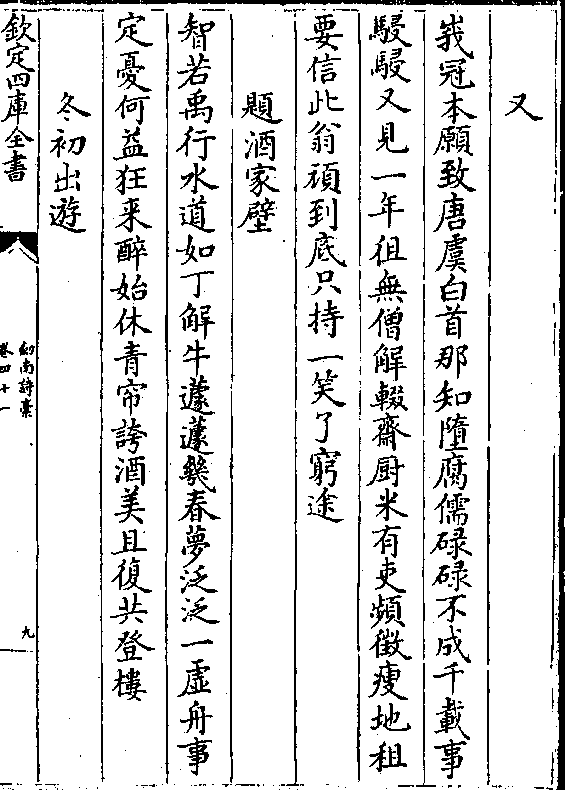 又
峩冠本願致唐虞白首那知墮腐儒碌碌不成千載事
駸駸又見一年徂無僧解輟齋厨米有吏頻徵瘦地租
要信此翁頑到底只持一笑了窮途
題酒家壁
智若禹行水道如丁解牛蘧蘧幾春夢泛泛一虚舟事
定憂何益狂来醉始休青帘誇酒美且復共登樓
冬初出遊
欽定四庫全書
劒南詩藁
卷四十一
九